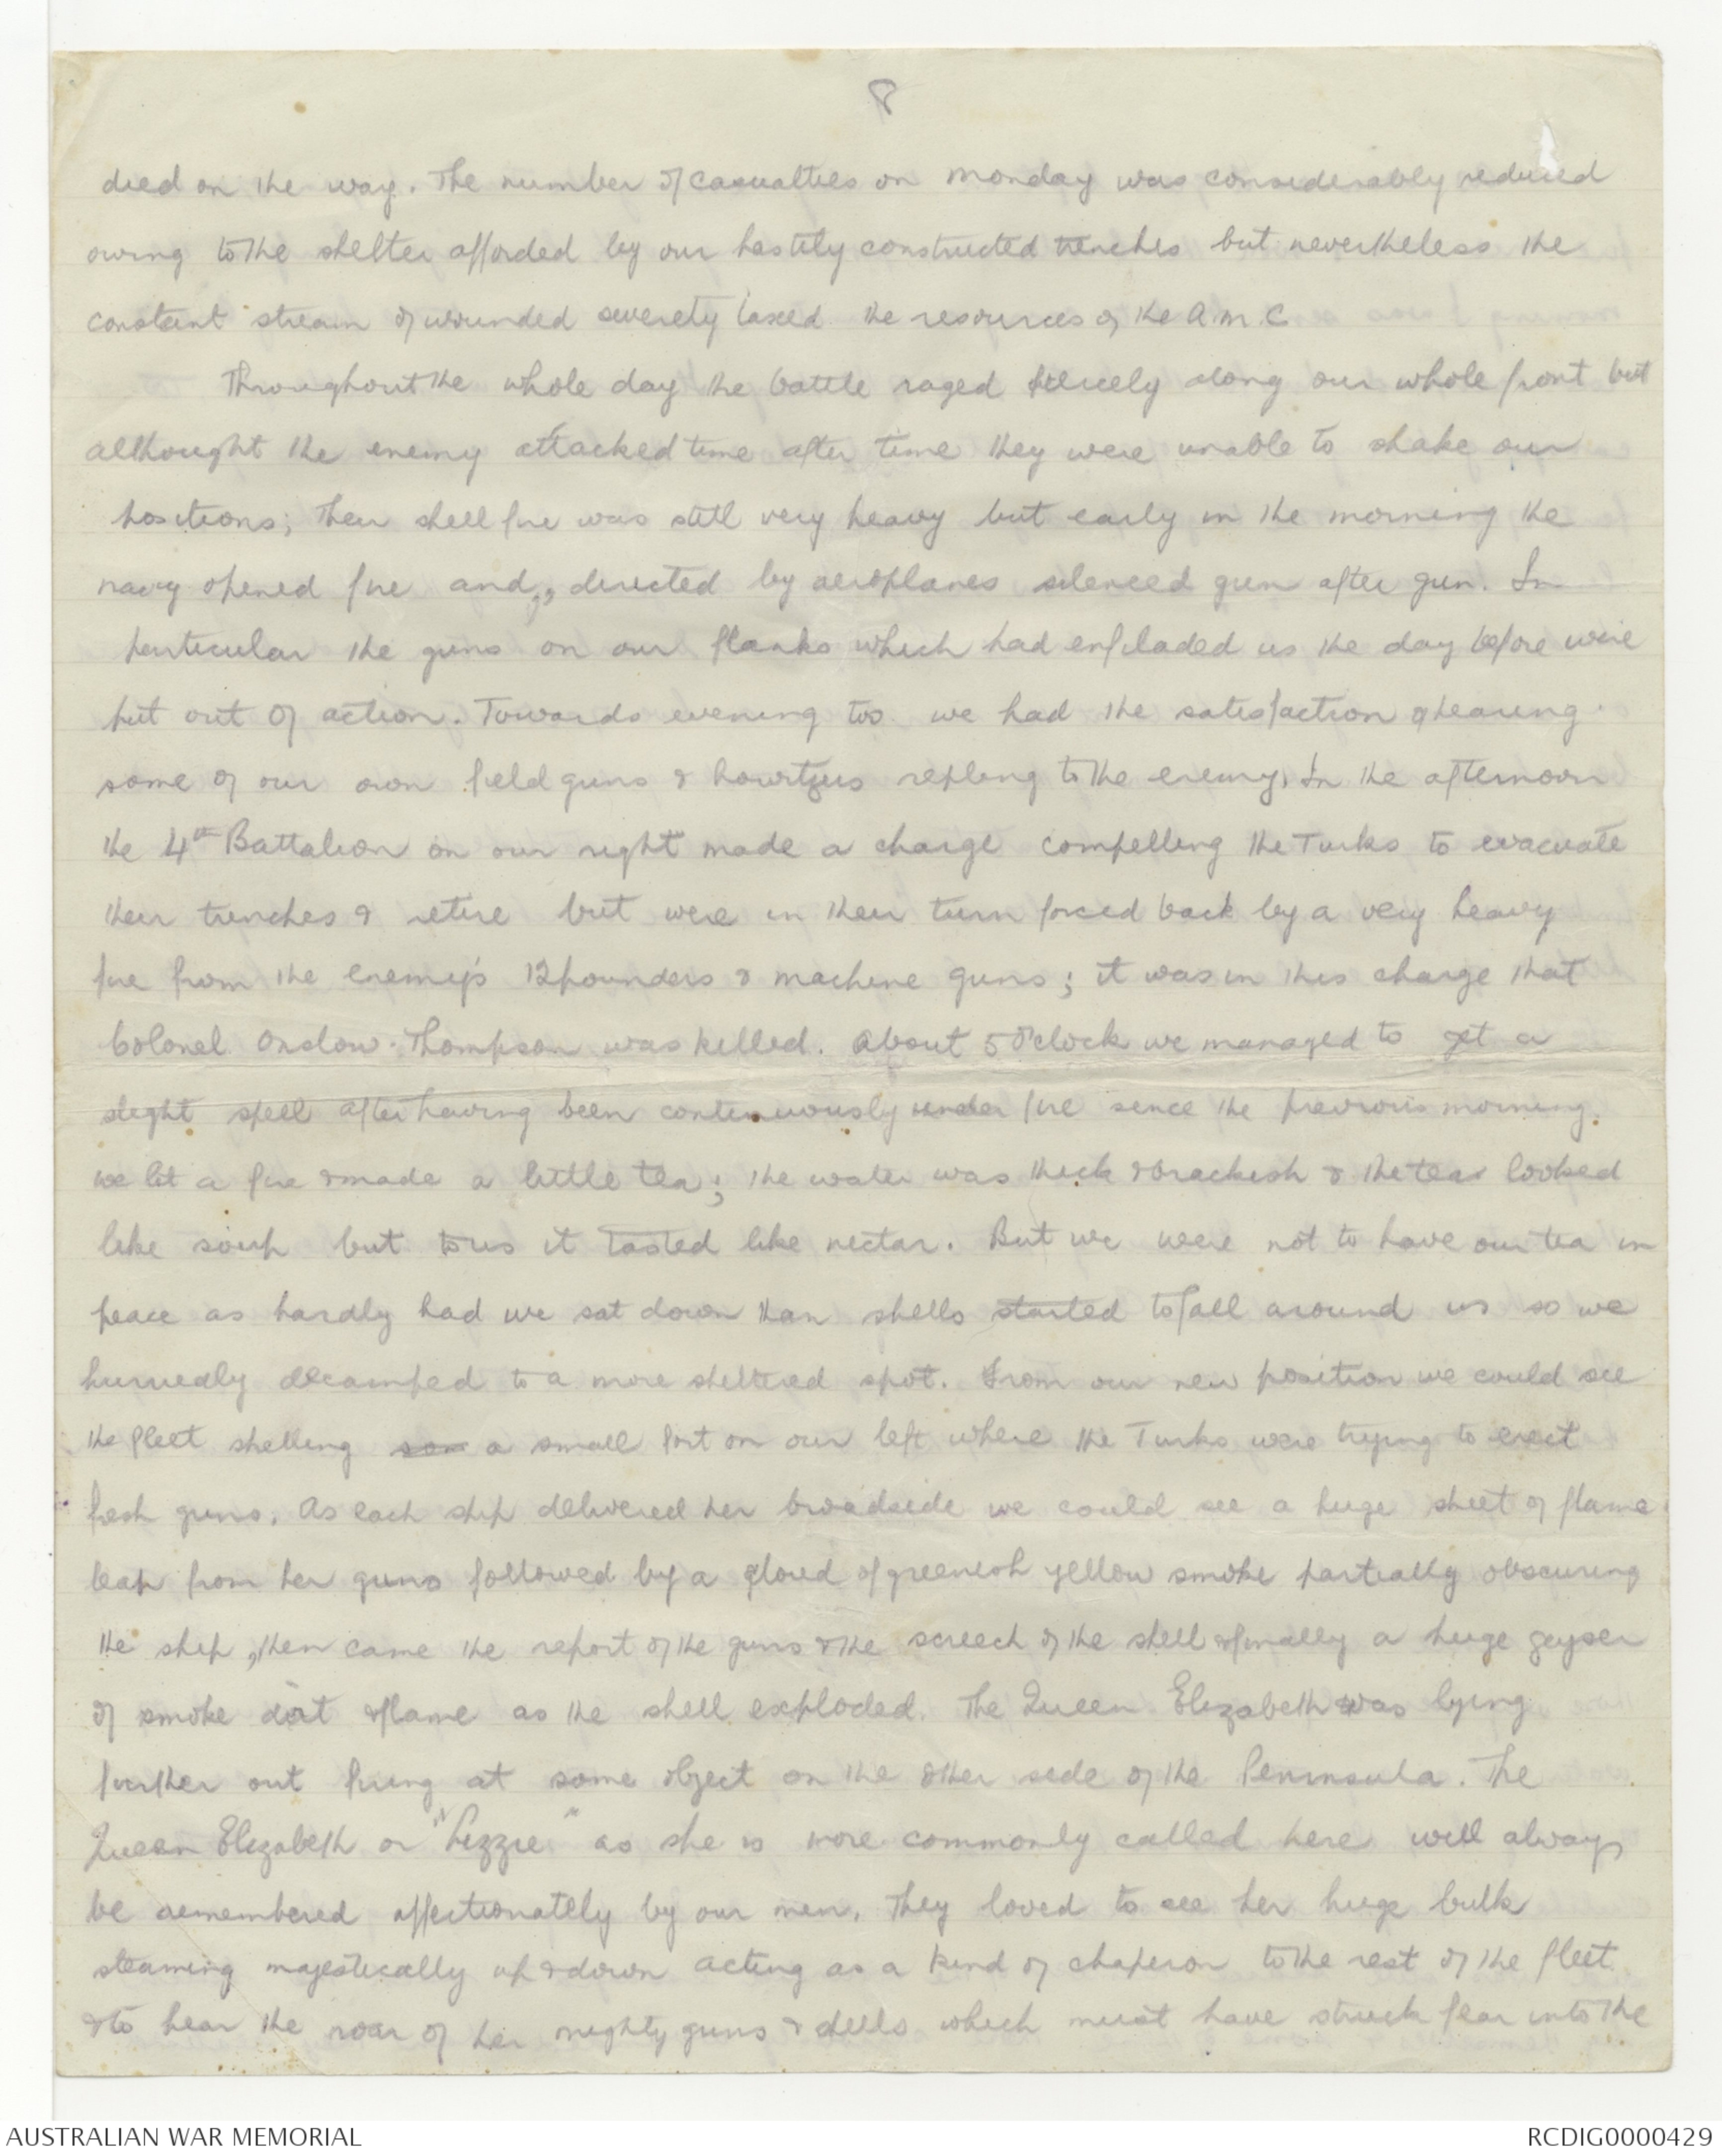 8
died on the way. The number of casualties on monday was considerably reduced
owing to the shelter afforded by our hastily constructed trenches but nevertheless the
constant stream of wounded severely taxed the resources of the A.M.C
Throughout the whole day the battle raged fiercely along our whole front but
althought the enemy attacked time after time they were unable to shake our
positions; Their shell fire was still very heavy but early in the morning the
navy opened fire and,, directed by aeroplanes silenced gun after gun. In
particular the guns on our flanks which had enfiladed us the day before were
put out of action. Towards evening too we had the satisfaction of hearing
some of our own field guns & howitzers replying to the enemy. In the afternoon
the 4th Battalion on our right made a charge compelling the Turks to evacuate
their trenches & retire but were in their turn forced back by a very heavy
fire from the enemy's 12 pounders & machine guns; it was in this charge that
Colonel Onslow-Thompson was killed. About 5 O'clock we managed to get a
slight spell after having been continuously under fire since the previous morning.
we lit a fire & made a little tea; the water was thick & brackish & the tea looked
like soup but to us it tasted like nectar. But we were not to have our tea in
peace as hardly had we sat down than shells started to fall around us so we
hurriedly decamped to a more sheltered spot. From our new position we could see
the fleet shelling som a small fort on our left where the Turks were trying to erect
fresh guns. As each ship delivered her broadside we could see a huge sheet of flame
leap from her guns followed by a cloud of greenish yellow smoke partially obscuring
the ship, then came the report of the guns & the screech of the shell & finally a huge geyser
of smoke dirt & flame as the shell exploded. The Queen Elizabeth was lying
further out firing at some object on the other side of the Peninsula. The
Queen Elizabeth or "Lizzie" as she is more commonly called here will always
be remembered affectionately by our men. They loved to see her huge bulk
steaming majestically up & down acting as a kind of chaperon to the rest of the fleet
& to hear the roar of her mighty guns & shells which must have struck fear into the
AUSTRALIAN WAR MEMORIAL
RCDIG0000429